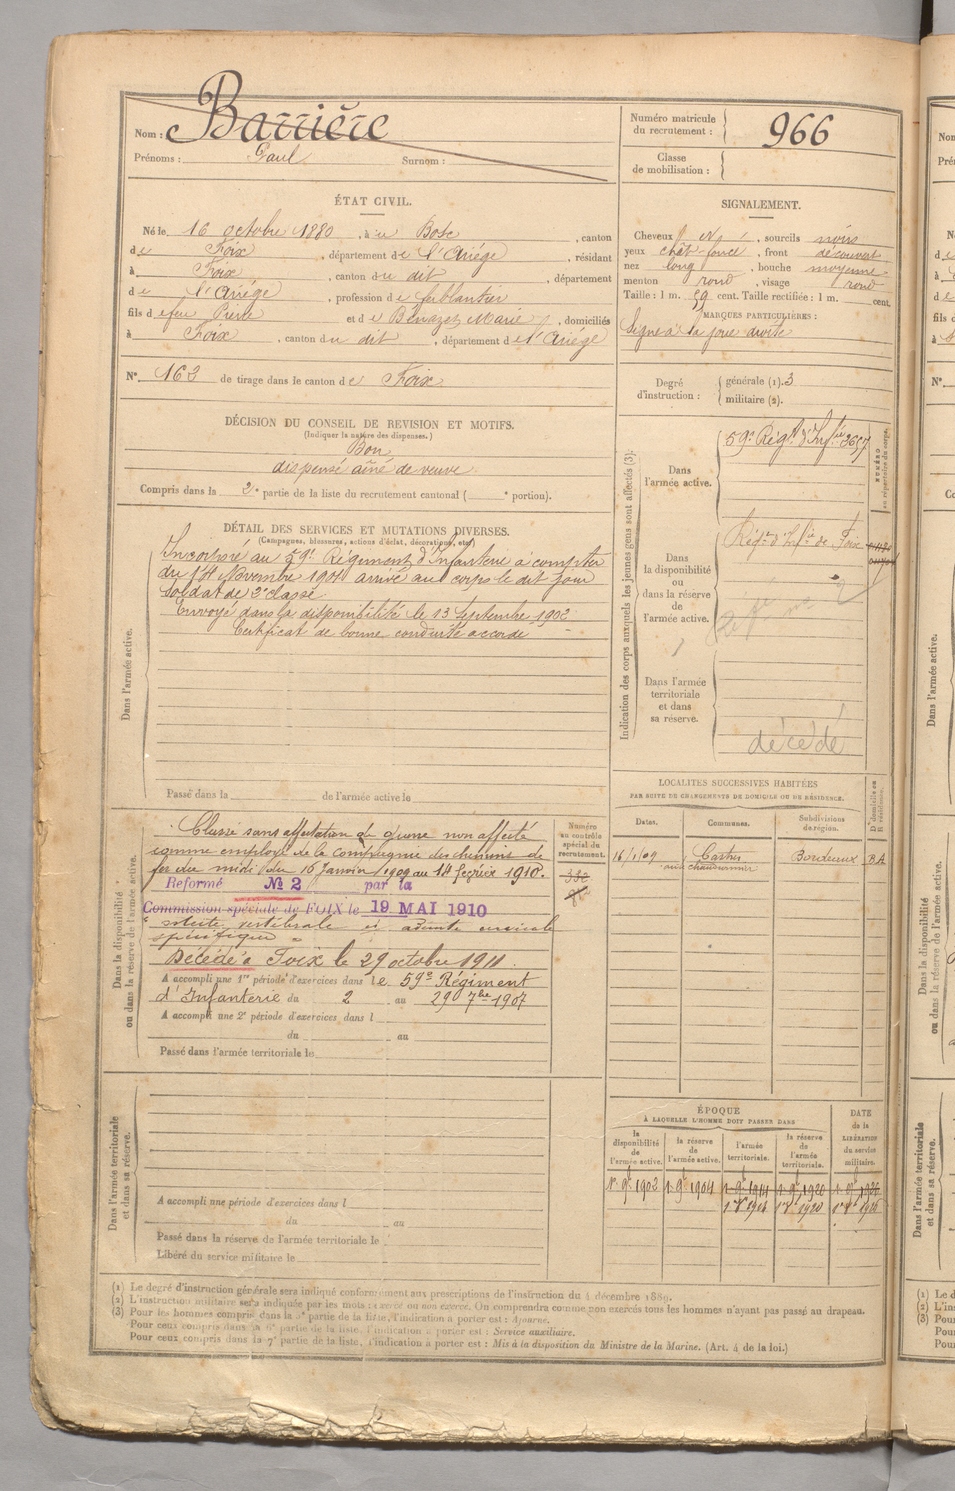 Nom : Barrière
Prénoms : Paul Surnom :
Numéro matricule du recrutement : 966
Classe de mobilisation :
ÉTAT CIVIL.
Né le 16 octobre 1880, à Bosc, canton
de Foix, département de l'Ariège, résidant
à Foix, canton du dit, département
de l'Ariège, profession de ferblantier
fils de feu Pierre et de Bénazet Marie, domiciliés
à Foix, canton du dit, département de l'Ariège
N° 163 de tirage dans le canton de Foix
SIGNALEMENT.
Cheveux, sourcils noirs
yeux chât. foncé, front découvert
nez long, bouche moyenne
menton rond, visage rond
Taille : 1 m. 59 cent. Taille rectifiée : 1 m. cent.
MARQUES PARTICULIÈRES :
Signe à la joue droite
Degré d'instruction : générale (1). 3
militaire (2).
DÉCISION DU CONSEIL DE REVISION ET MOTIFS.
(Indiquer la nature des dispenses.)
Bon
dispensé aîné de veuve
Compris dans la 2e partie de la liste du recrutement cantonal ( e portion).
DÉTAIL DES SERVICES ET MUTATIONS DIVERSES.
(Campagnes, blessures, actions d'éclat, décorations, etc.)
Dans l'armée active.
Incorporé au 59e Régiment d'Infanterie à compter
du 14 Novembre 1901 arrivé au corps le dit jour
soldat de 2e classe
Envoyé dans la disponibilité le 13 Septembre 1902
Certificat de bonne conduite accordé
Passé dans la de l'armée active le
Indication des corps auxquels les jeunes gens sont affectés (3).
NUMÉRO au répertoire du corps.
Dans l'armée active.
59e Régt d'Infie 3657
Dans la disponibilité ou dans la réserve de l'armée active.
Régt d'Infie de Foix
Réf. no 2
Dans l'armée territoriale et dans sa réserve.
décédé
Dans la disponibilité ou dans la réserve de l'armée active.
Classé sans affectation de guerre non affecté
comme employé de la compagnie des chemins de
fer du midi du 16 Janvier 1909 au 14 février 1910.
Réformé N° 2 par la
Commission spéciale de FOIX le 19 MAI 1910
Décédé à Foix le 29 octobre 1911.
A accompli une 1re période d'exercices dans le 59e Régiment
d'Infanterie du 2 au 29 7bre 1907
A accompli une 2e période d'exercices dans l
du au
Passé dans l'armée territoriale le
Numéro au contrôle spécial du recrutement.
LOCALITÉS SUCCESSIVES HABITÉES
PAR SUITE DE CHANGEMENTS DE DOMICILE OU DE RÉSIDENCE.
Dates. Communes. Subdivisions de région. D. domicile ou R. résidence.
16/1/09 Castres Bordeaux
Dans l'armée territoriale et dans sa réserve.
A accompli une période d'exercices dans l
du au
Passé dans la réserve de l'armée territoriale le
Libéré du service militaire le
ÉPOQUE
À LAQUELLE L'HOMME DOIT PASSER DANS
DATE de la LIBÉRATION du service militaire.
la disponibilité de l'armée active. la réserve de l'armée active. l'armée territoriale. la réserve de l'armée territoriale.
1. 9e 1902 1. 9e 1904 1. 9e 1914 1. 9e 1920 1. 9e 1926
(1) Le degré d'instruction générale sera indiqué conformément aux prescriptions de l'instruction du 4 décembre 1889.
(2) L'instruction militaire sera indiquée par les mots : exercé ou non exercé. On comprendra comme non exercés tous les hommes n'ayant pas passé au drapeau.
(3) Pour les hommes compris dans la 5e partie de la liste, l'indication à porter est : Ajourné.
Pour ceux compris dans la 6e partie de la liste, l'indication à porter est : Service auxiliaire.
Pour ceux compris dans la 7e partie de la liste, l'indication à porter est : Mis à la disposition du Ministre de la Marine. (Art. 4 de la loi.)